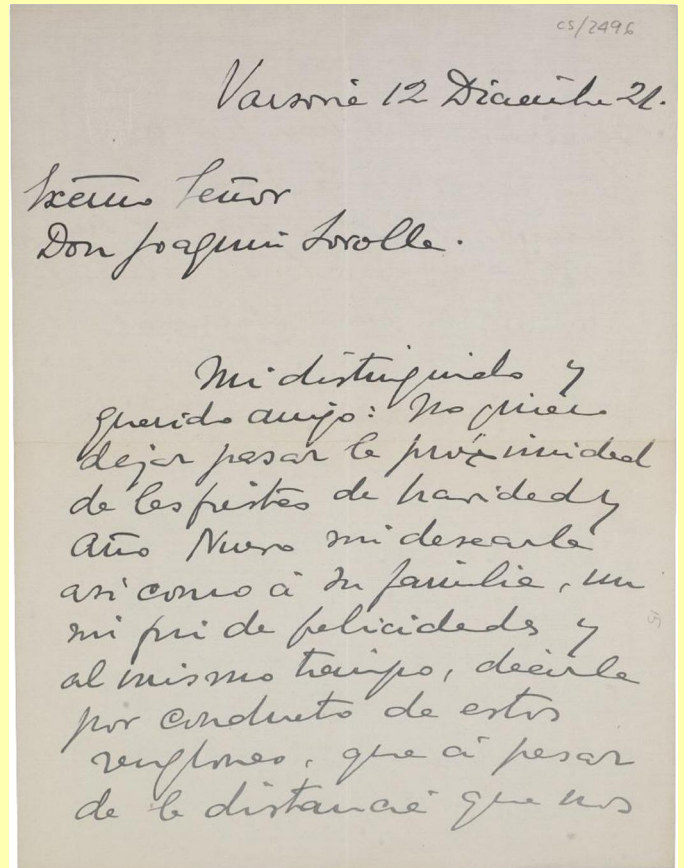 CS/2496
Varsovia 12 Diciembre 21.
Excmo Señor
Don Joaquin Sorolla.
Mi distinguido y
querido amigo: No quiero
dejar pasar la proximidad
de las fiestas de Navidad y
Año Nuevo sin desearle
asi como á su familia, un
sin fin de felicidades y
al mismo tiempo, decirle
por conducto de estos
renglones, que á pesar
de la distancia que nos